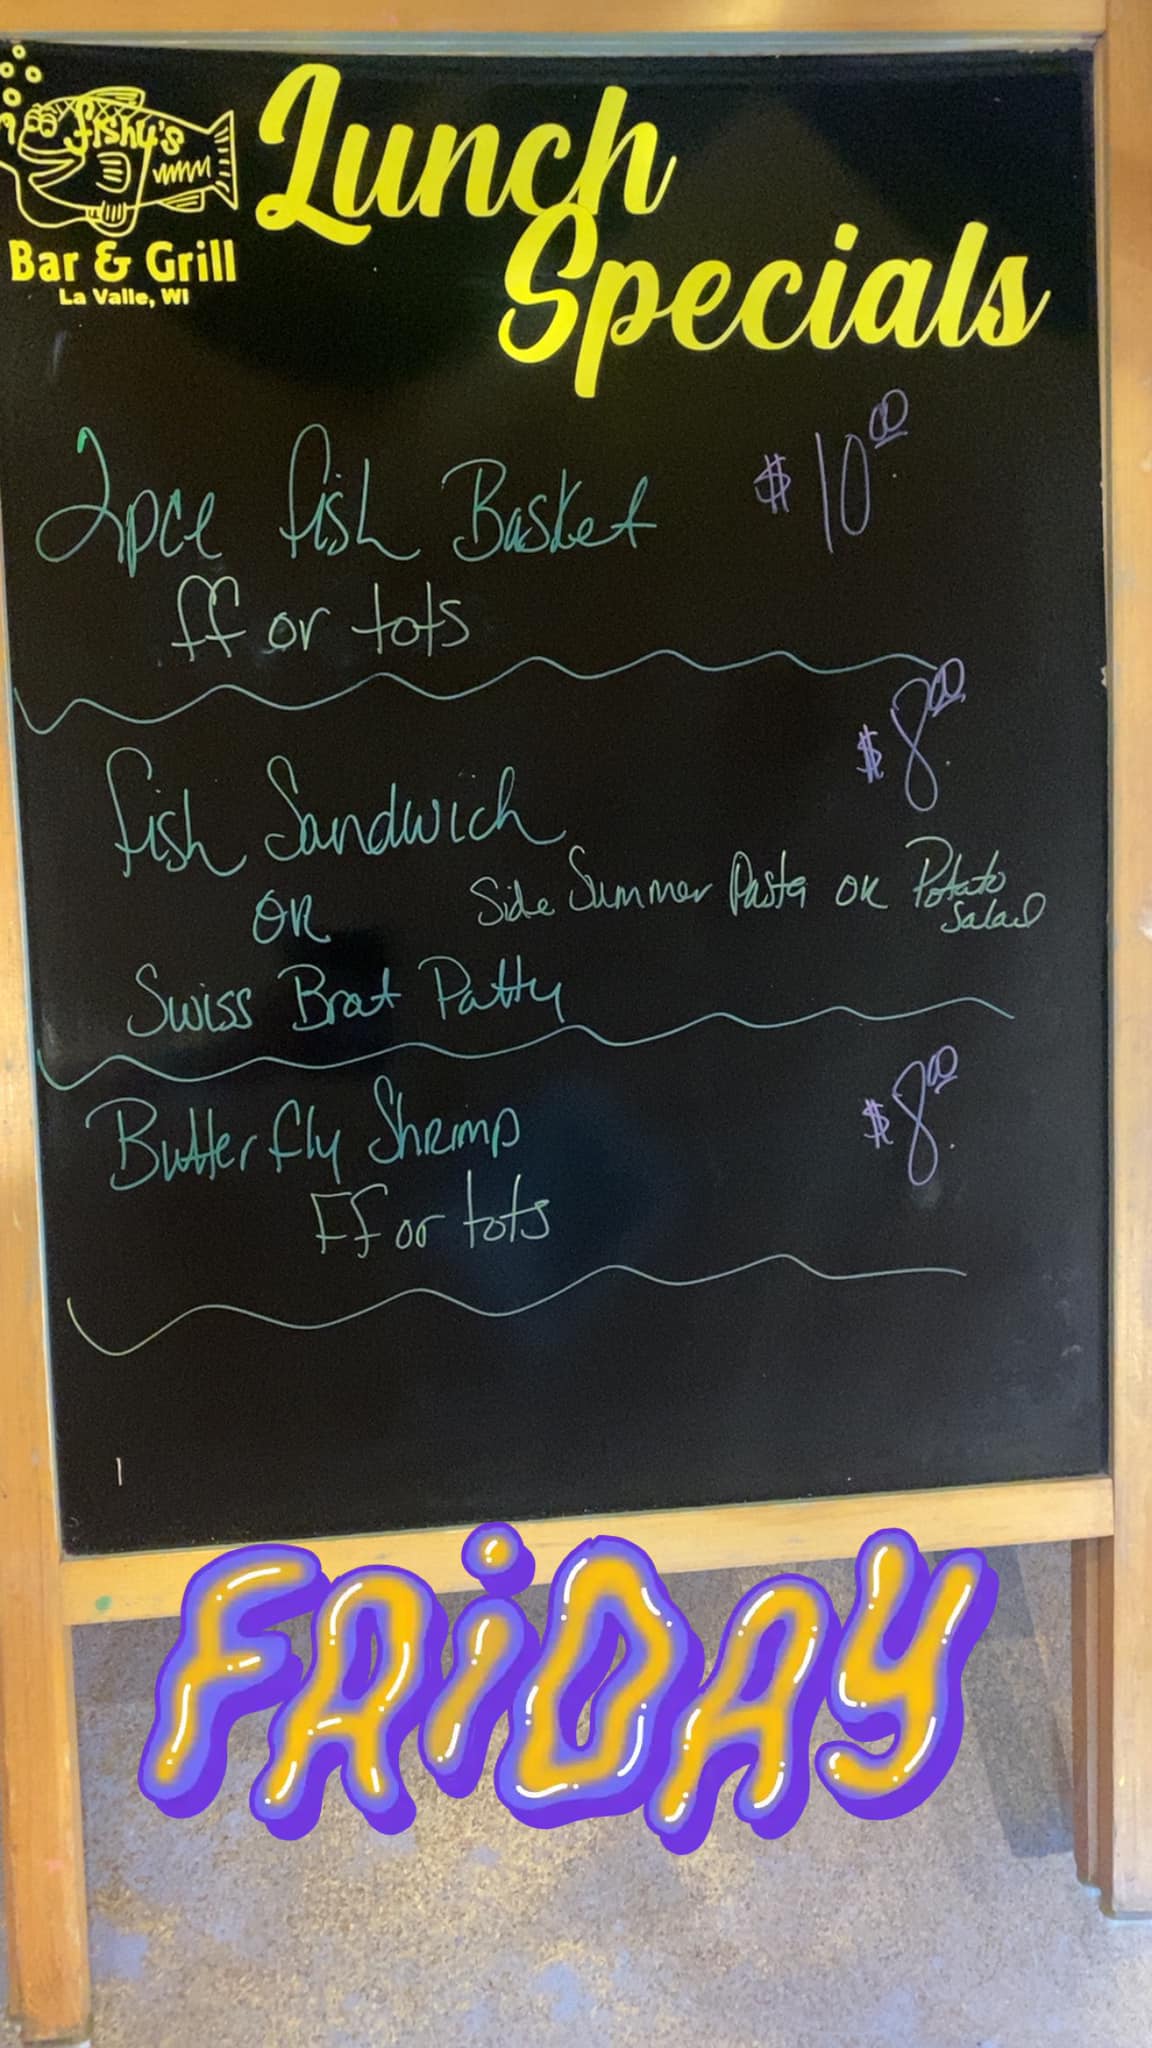 fishy's
Bar & Grill
La Valle, WI
Lunch
Specials
2pce fish Basket $10.00
ff or tots
$8.00
Fish Sandwich
OR Side Summer Pasta OR Potato
Salad
Swiss Brat Patty
Butterfly Shrimp $8.00
Ff or tots
FRiDAY